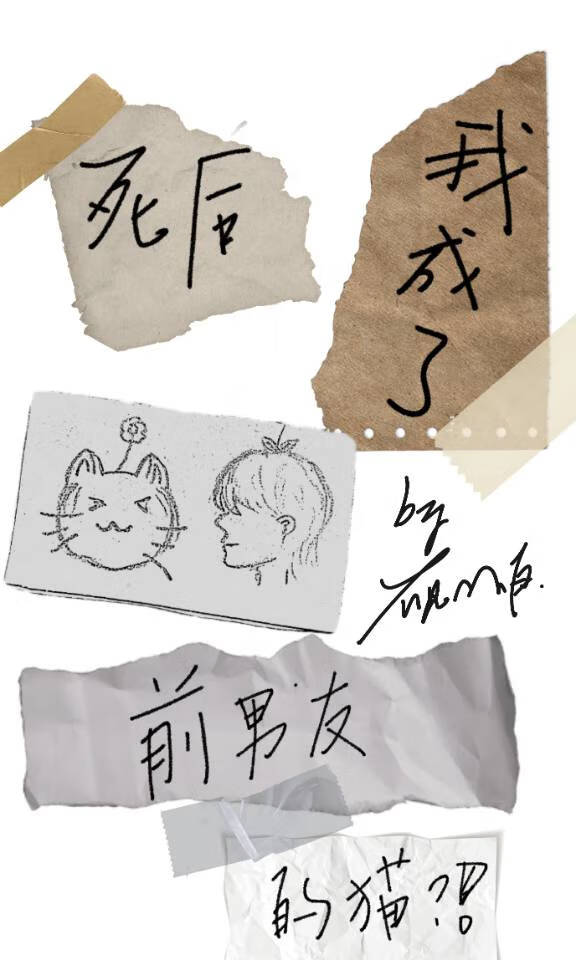 死后
我成了
by
前男友
的猫?!